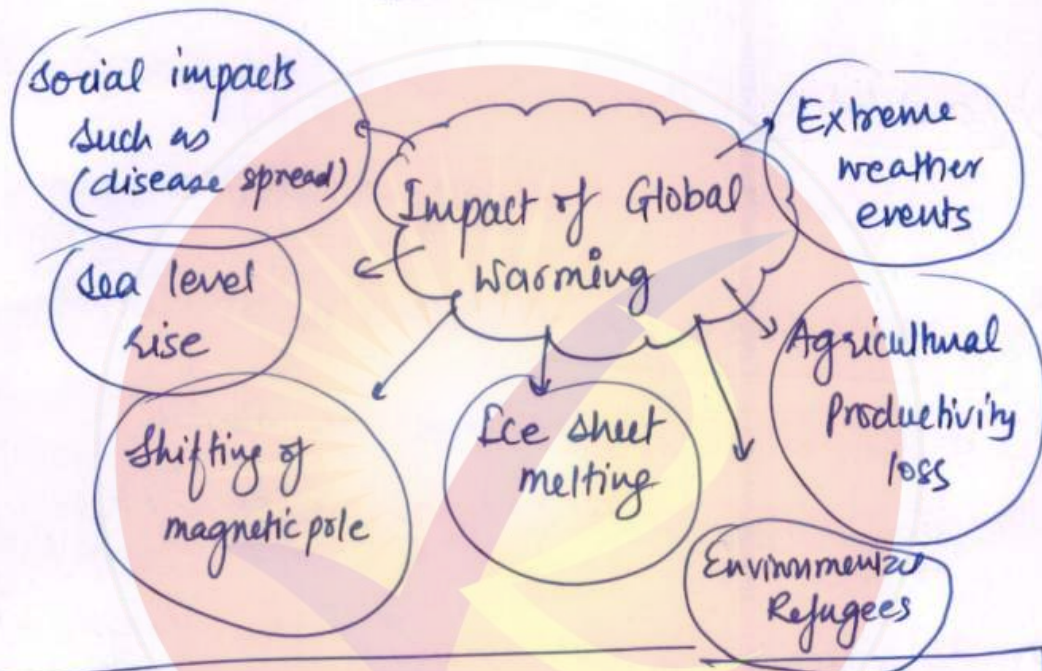 Social impacts
such as
(disease spread)
Impact of Global
Warming
Extreme
weather
events
Sea level
rise
Agricultural
productivity
loss
Shifting of
magnetic pole
Ice sheet
melting
Environmental
Refugees